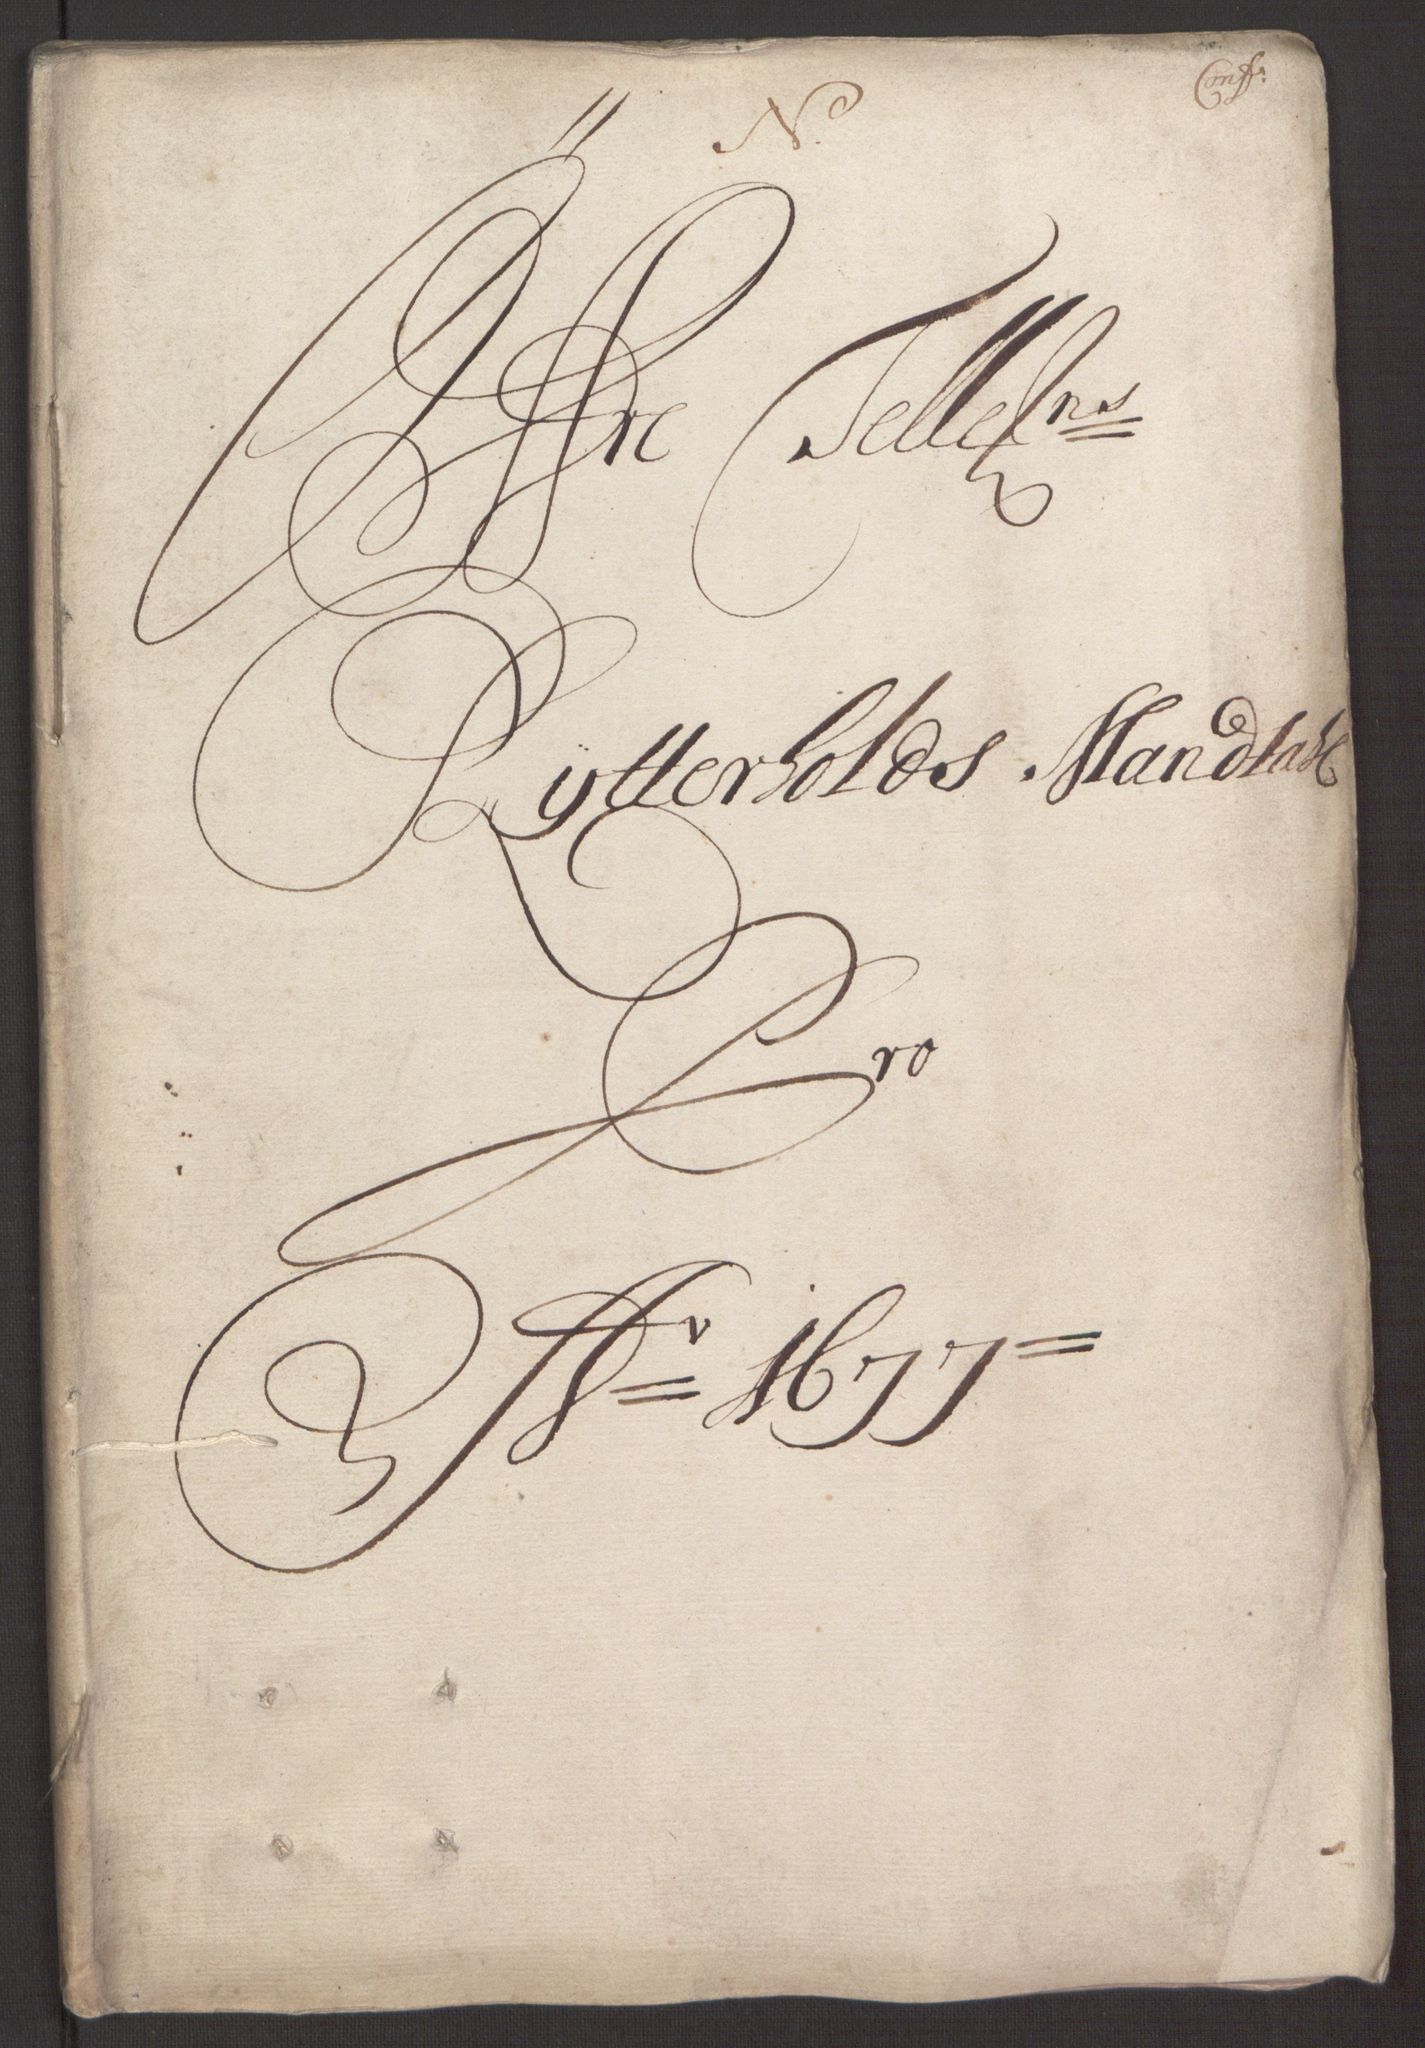 Conff:
No
Øffre Tellemrns
Rytterholds Mandtahl
Pro
Ao 1677